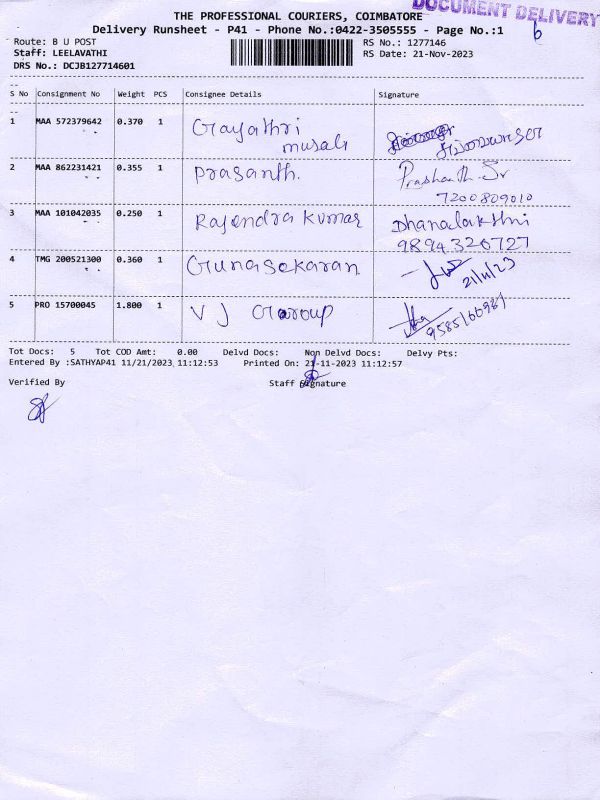 DOCUMENT DELIVERY
THE PROFESSIONAL COURIERS, COIMBATORE
Delivery Runsheet - P41 - Phone No.:0422-3505555 - Page No.:1
Route: B U POST RS No.: 1277146
Staff: LEELAVATHI RS Date: 21-Nov-2023
DRS No.: DCJB127714601
S No Consignment No Weight PCS Consignee Details Signature
1 MAA 572379642 0.370 1 Gayathri
musali
2 MAA 862231421 0.355 1 Prasanth. Prashanth. Sr
7200809010
3 MAA 101042035 0.250 1 Rajendra kumar Dhanalakshmi
9894326727
4 TMG 200521300 0.360 1 Gunasekaran
21/11/23
5 PRO 15700045 1.800 1 V J Group
Tot Docs: 5 Tot COD Amt: 0.00 Delvd Docs: Non Delvd Docs: Delvy Pts:
Entered By :SATHYAP41 11/21/2023 11:12:53 Printed On: 21-11-2023 11:12:57
Verified By Staff Signature